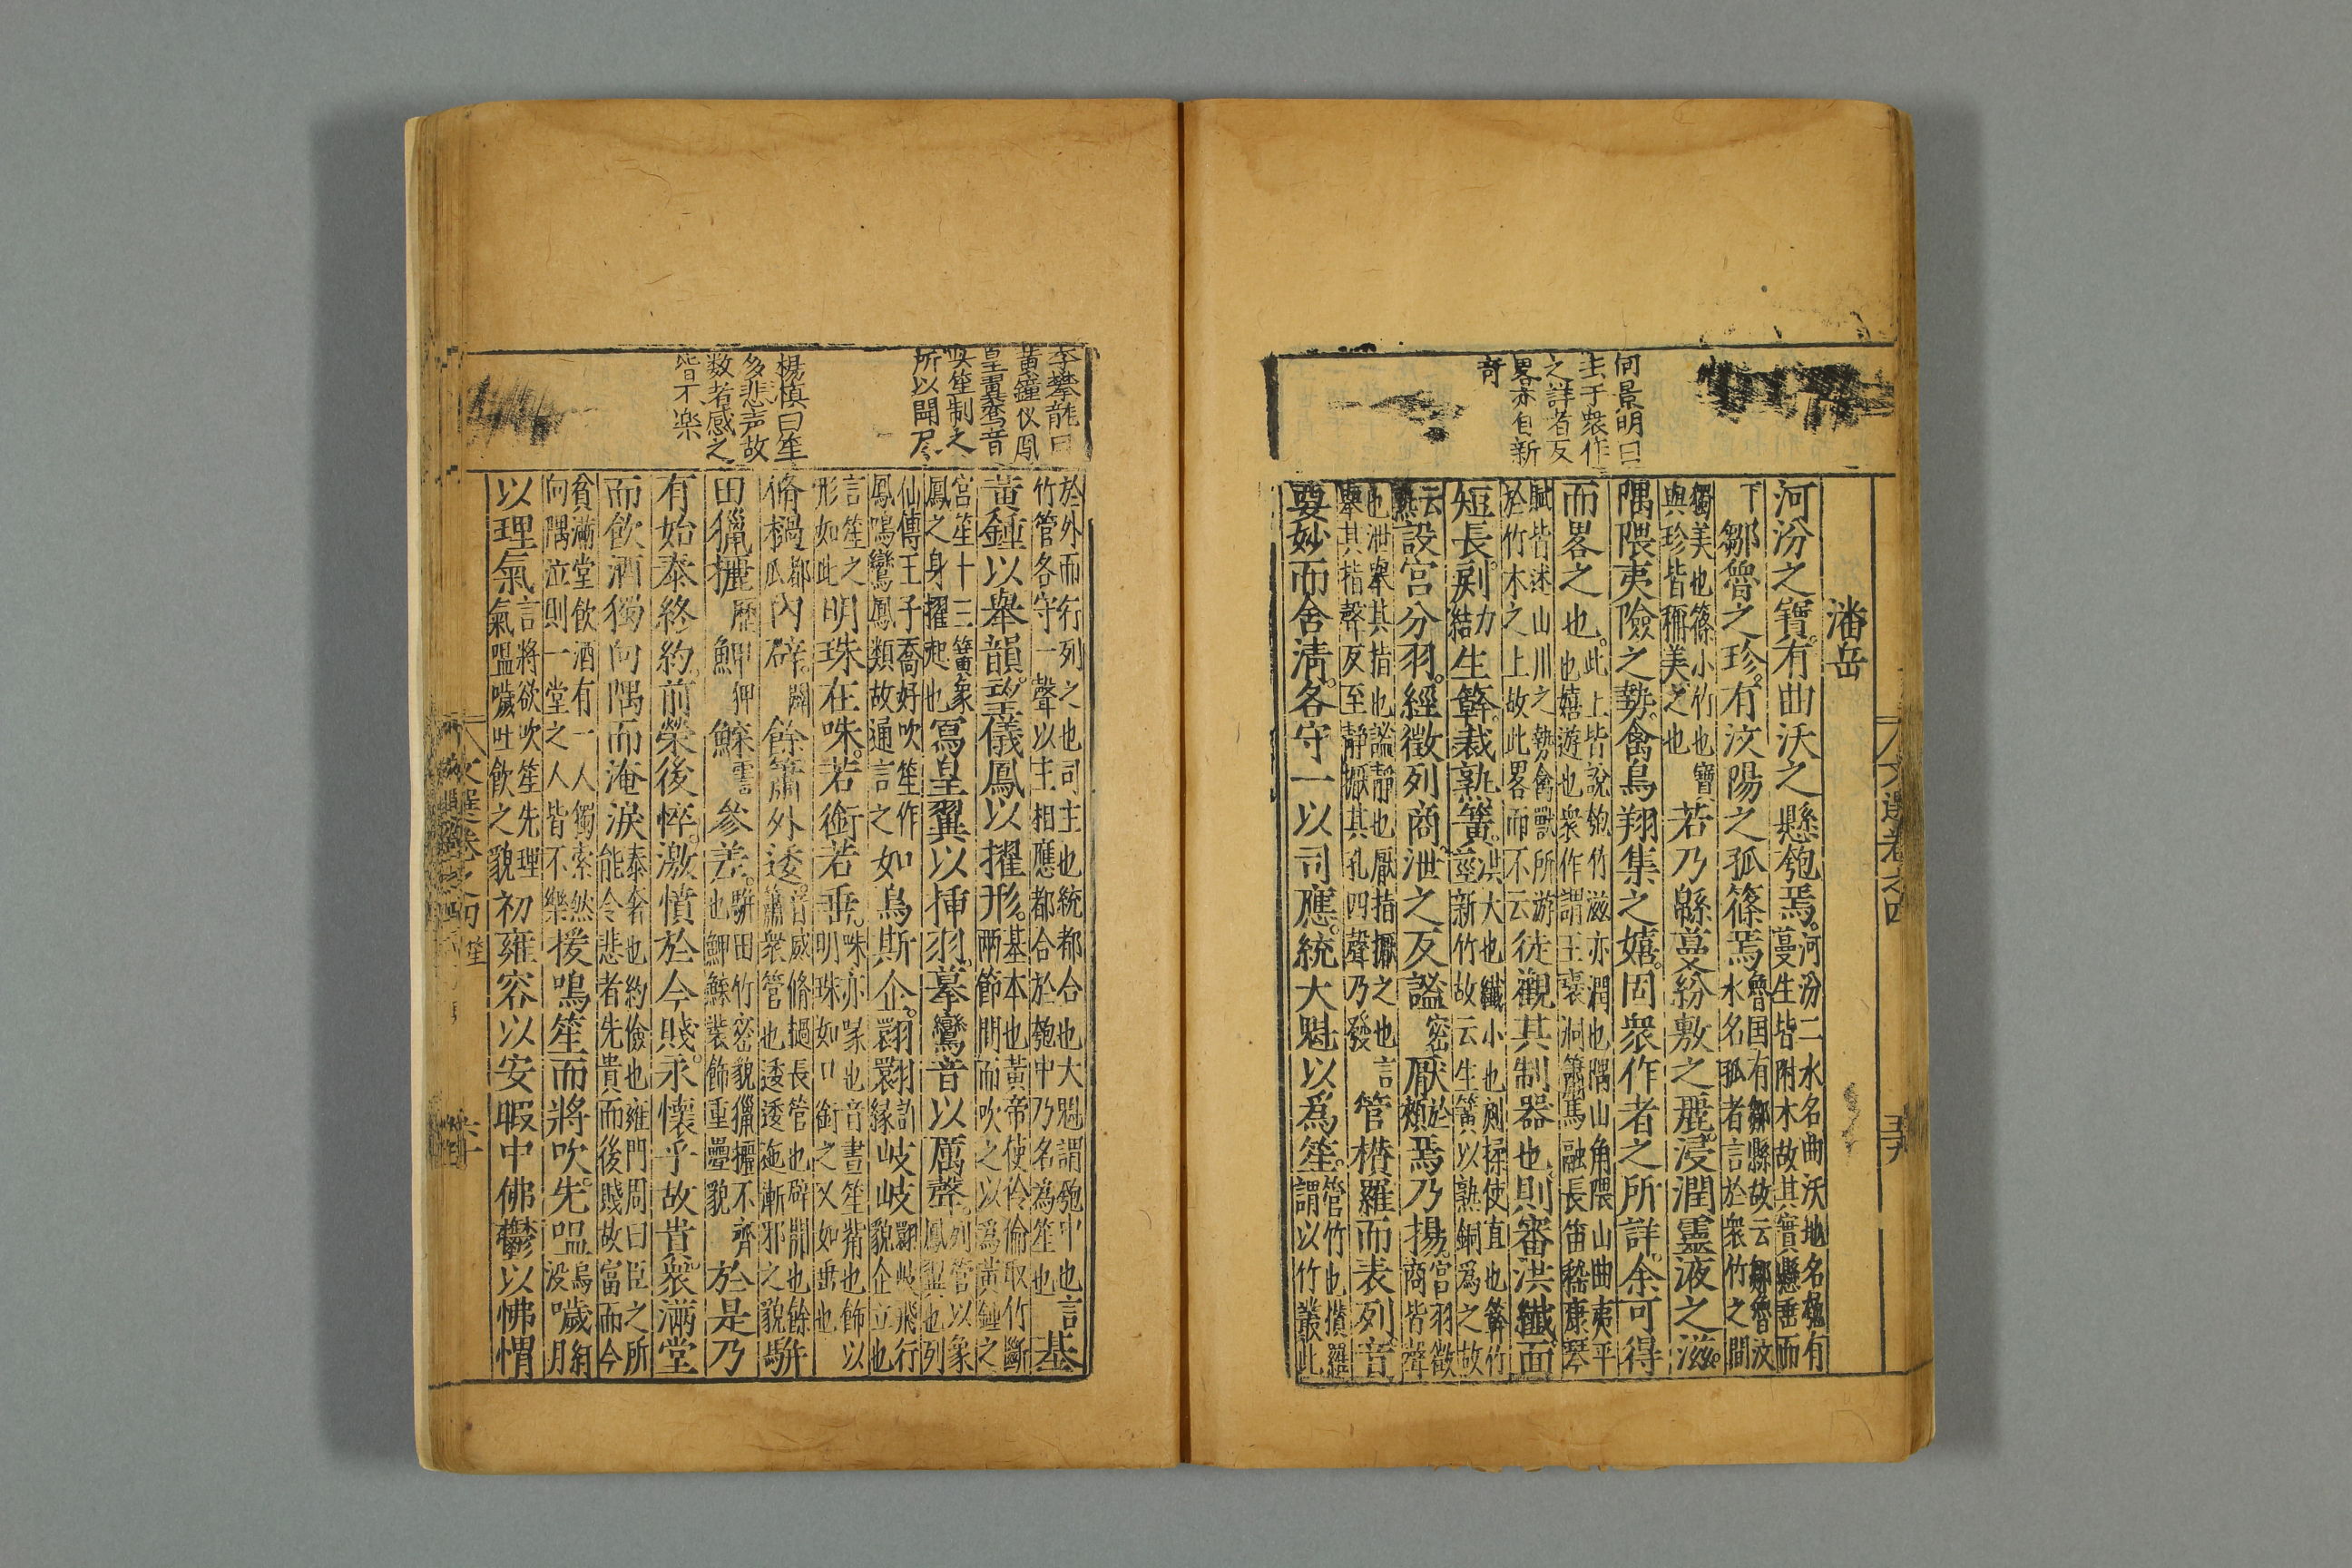 文選卷之四
五十九
何景明曰
主于衆作
之詳者反
畧亦自新
奇
潘岳
河汾之寶有曲沃之懸匏焉。河汾二水名曲沃地名匏有蔓生皆附木故其實懸垂而
下鄒魯之珍有汶陽之孤篠焉魯国有鄒縣故云鄒魯汶水名孤者言於衆竹之間
獨美也篠小竹也寶與珍皆稱美之也若乃緜蔓紛敷之麗浸潤靈液之滋
隅隈夷險之勢禽鳥翔集之嬉。固衆作者之所詳。余可得
而畧之也。此上皆說匏竹滋亦潤也隅山角隈山曲夷平也嬉遊也衆作謂王褒洞簫馬融長笛嵇康琴
賦皆述山川之勢禽獸所游於竹木之上故此畧而不云徒觀其制器也則審洪纖面
短長。力結生簳。裁熟簧。洪大也纖小也揉使直也簳竹莖新竹故云生簧以熟銅爲之故
云熟設宮分羽。經徵列商。泄之反謐密厭於頰焉乃揚。宮羽徵商皆聲
也泄舉其指也謐靜也厭指擫之也言舉其指聲反至靜擫其孔四聲乃發管攅羅而表列音
要妙而含淸。各守一以司應。統大魁以爲笙。管竹也攅羅謂以竹叢此
李攀龍曰
黃鐘仪鳳
皇翼鸞音
與笙制之
所以開尽
楊慎曰笙
多悲声故
数者感之
皆不楽
於外而行列之也司主也統都合也大魁謂匏中也言竹管各守一聲以主相應都合於匏中乃名為笙也基
黃鍾以舉韻。望儀鳳以擢形。基本也黃帝使伶倫取竹斷兩節間而吹之以爲黃鍾之
宮笙十三簧象鳳之身擢起也寫皇翼以揷羽。摹鸞音以厲聲。列管以象鳳翼也列
仙傳王子喬好吹笙作鳳鳴鸞鳳類故通言之如鳥斯企。翾翾岐岐翾岐飛行貌企立也
言笙之形如此明珠在咮。若銜若垂。咮亦喙也音晝笙觜也飾以明珠如口銜之又如垂也
脩檛瓜內辟。闢餘簫外逶。音威脩檛長管也辟開也餘簫衆管也逶逶迤漸邪之貌駢
田獵攦歷鮙狎參差。駢田竹密貌獵攦不齊也裝飾重疊貌於是乃
有始泰終約。前榮後悴。激憤於今賤。永懷乎故貴。衆滿堂
而飮酒獨向隅而淹淚泰奢也約儉也雍門周曰臣之所能令悲者先貴而後賤故富而今
貧滿堂飮酒有一人獨索然向隅泣則一堂之人皆不樂援鳴笙而將吹。先嗢烏没噦月
以理氣言將欲吹笙先理氣嗢噦吐飮之貌初雍容以安暇中佛鬱以怫愲
文選卷之四
笙
六十